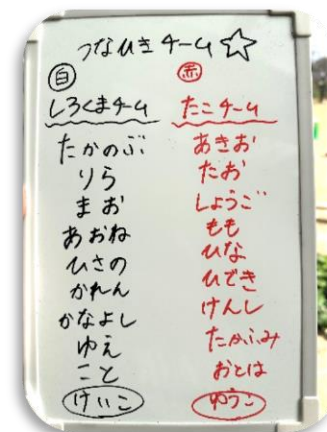 つなひきチーム☆
白
しろくまチーム
たかのぶ
りら
まお
あおね
ひさの
かれん
かなよし
ゆえ
こと
けいこ
赤
たこチーム
あきお
たお
しょうご
もも
ひな
ひでき
けんし
たかふみ
おとは
ゆうこ